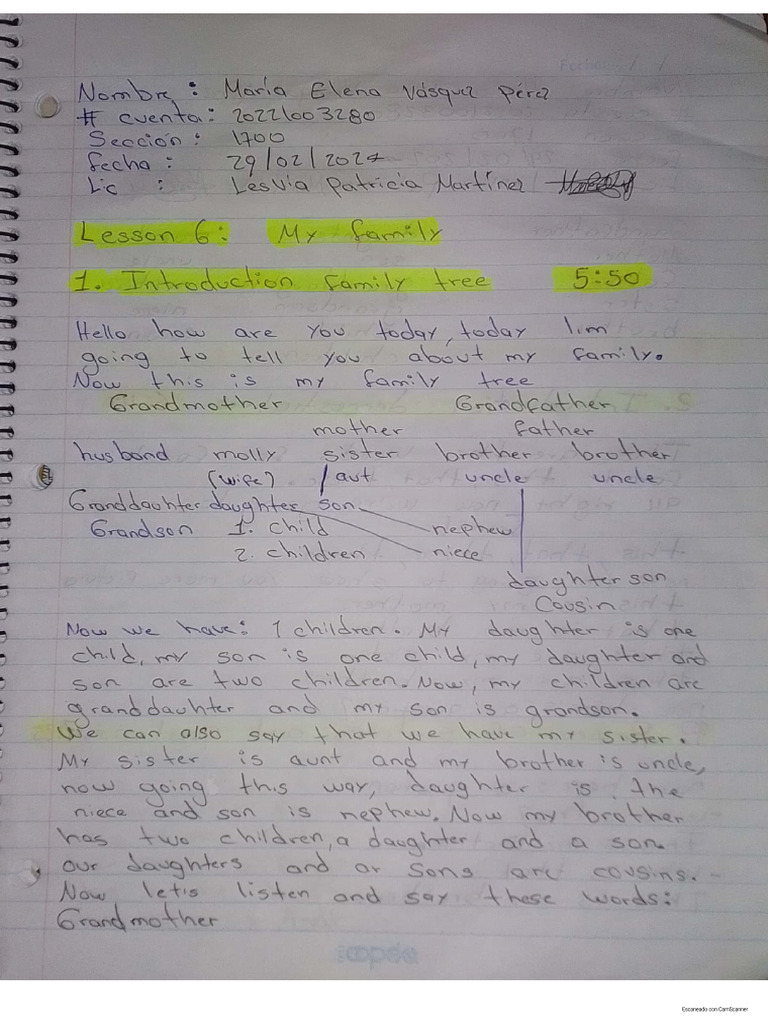 Fecha: / /
Nombre : María Elena Vásquez Pérez
# cuenta : 20221003280
Sección : 1700
fecha : 29/02/2024
Lic : Lesvia Patricia Martínez
Lesson 6: My family
1. Introduction family tree 5:50
Hello how are you today, today I im
going to tell you about my family.
Now this is my family tree
Grandmother Grandfather
mother father
husband molly sister brother brother
(wife) aut uncle uncle
Granddauhter daughter son
Grandson 1. child nephew
2. children niece
daughter son
Cousin
Now we have: 1 children. My daughter is one
child, my son is one child, my daughter and
son are two children. Now, my children are
granddauhter and my son is grandson.
We can also say that we have my sister.
My sister is aunt and my brother is uncle,
now going this way, daughter is the
niece and son is nephew. Now my brother
has two children, a daughter and a son.
our daughters and or sons are cousins.
Now let's listen and say these words:
Grandmother
Escaneado con CamScanner